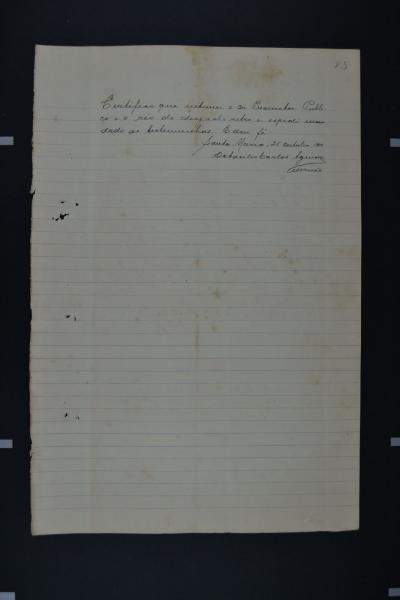 83
Certifico que intimei o Dr Promotor Publi-
co e o réo do despacho retro e expedi man-
dado as testemunhas. E dou fé
Santa Maria, 25 Outubro
Escrivão